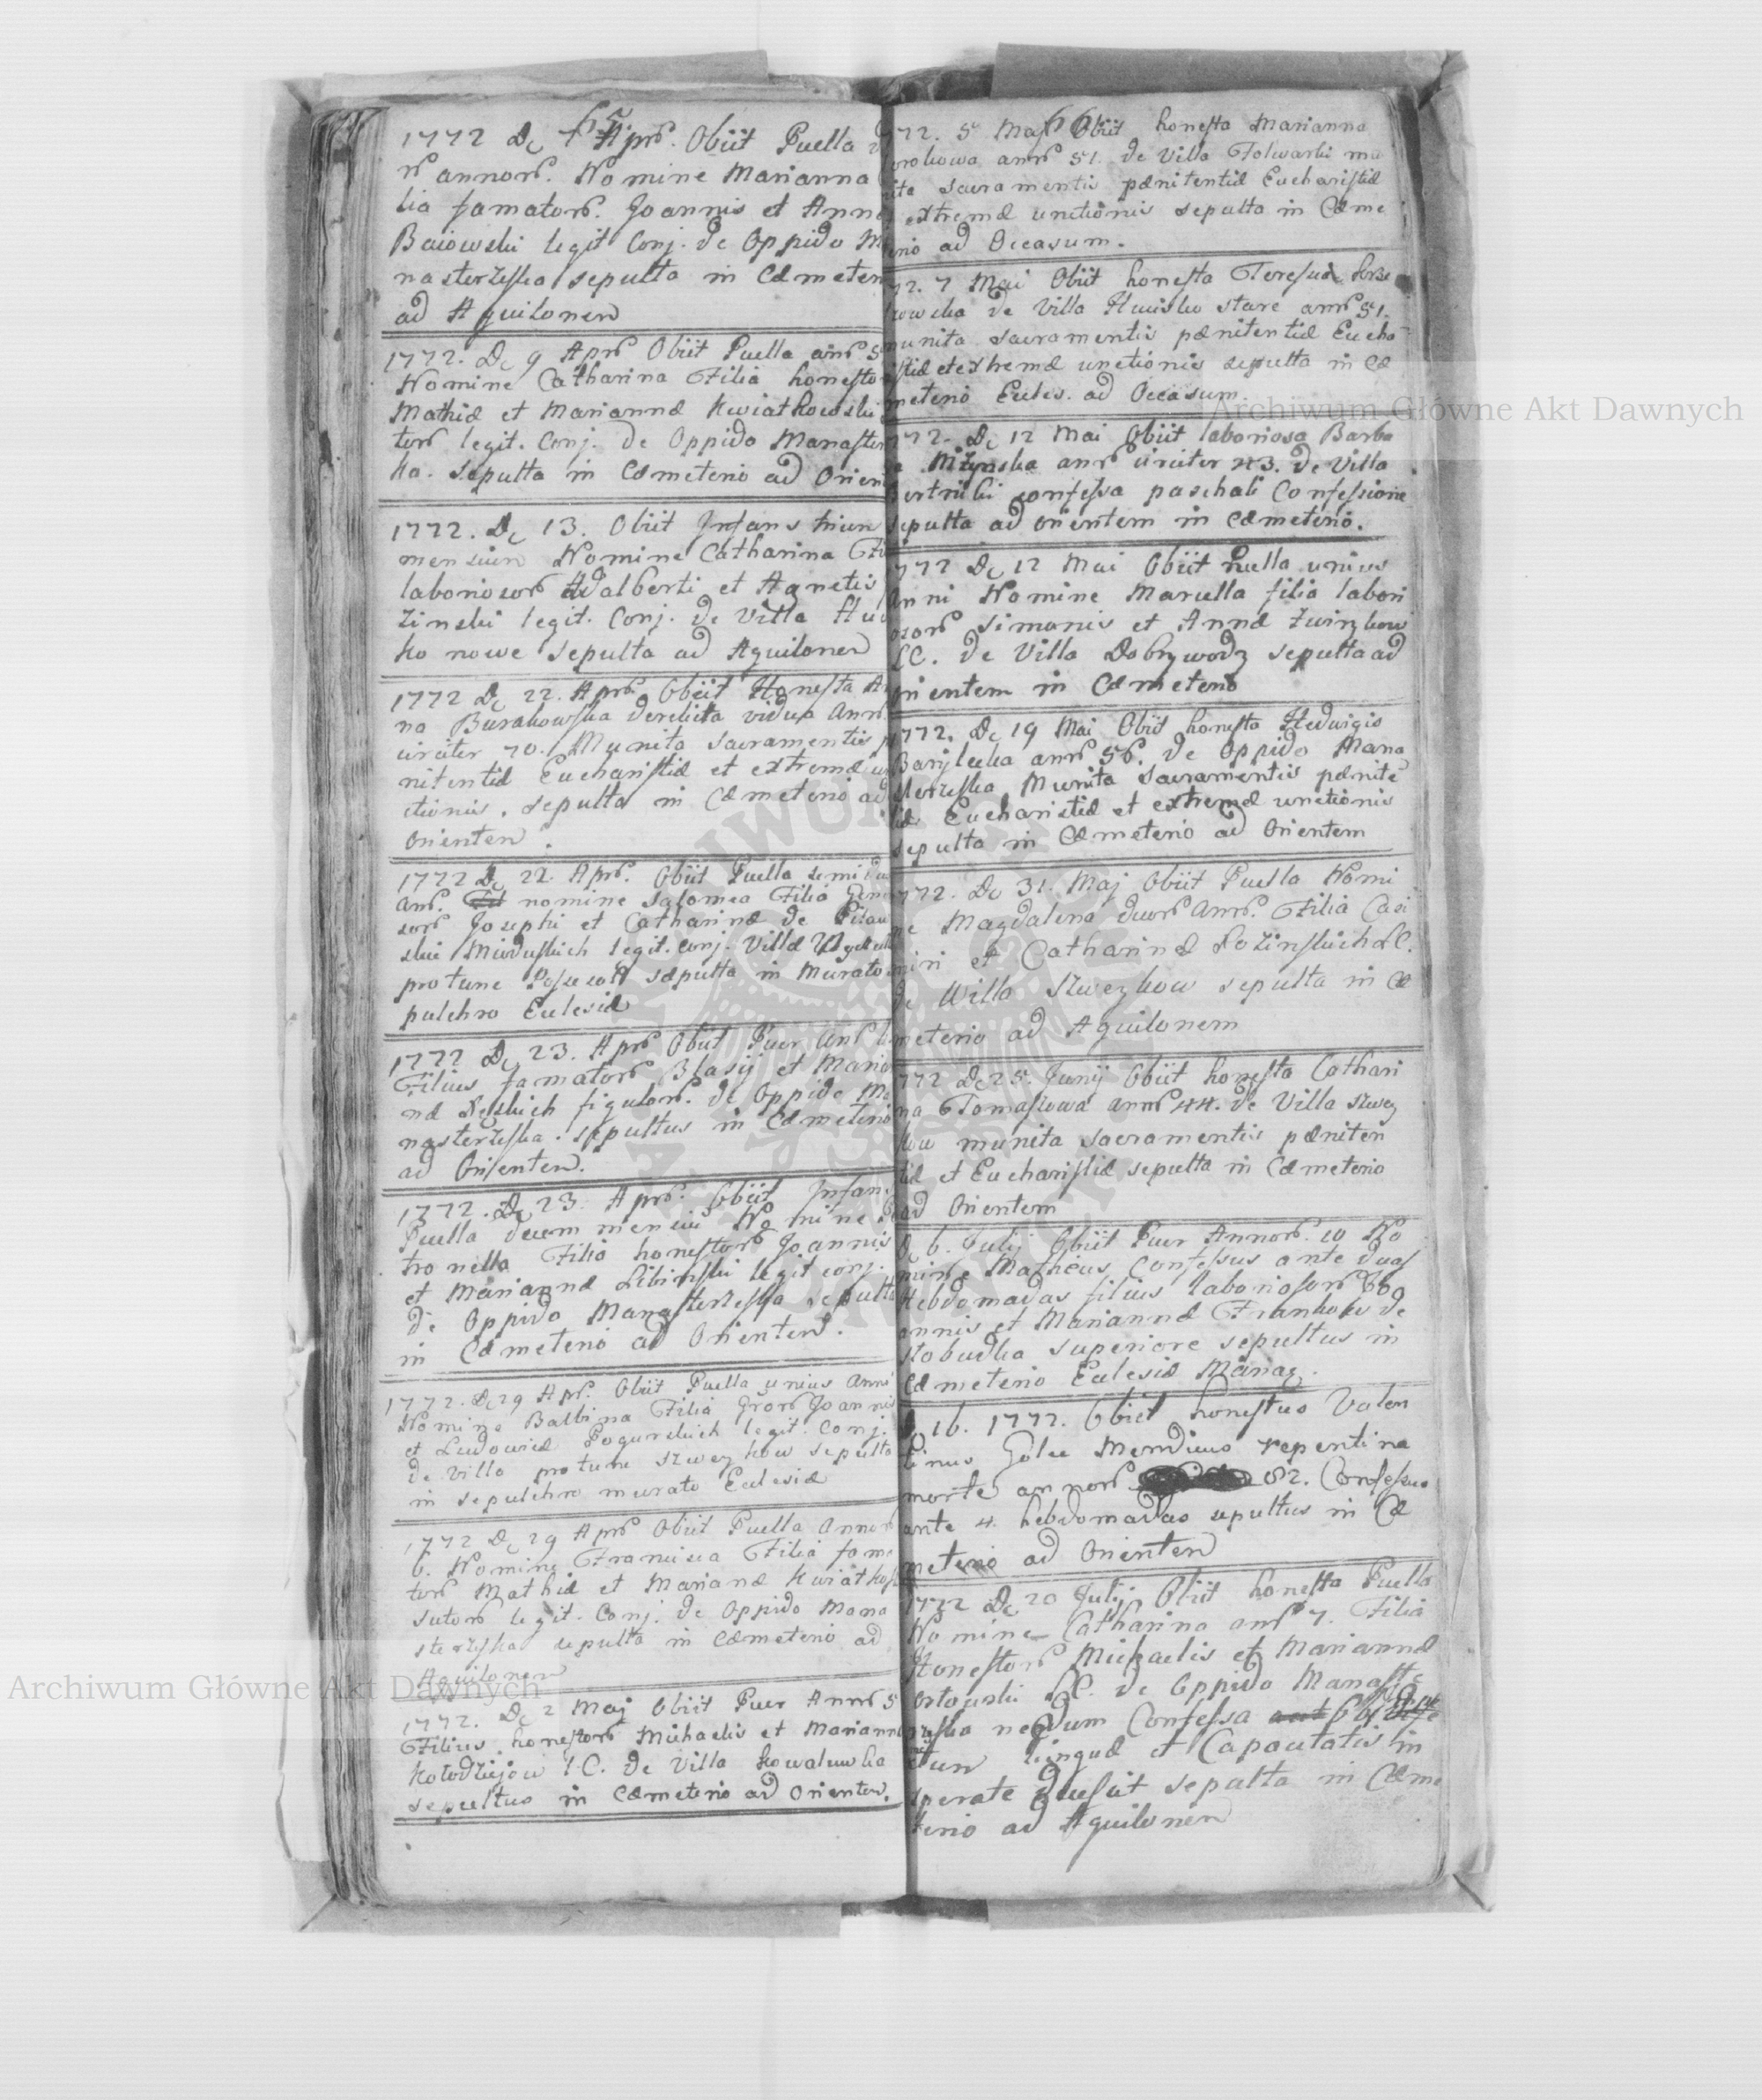 65.
1772 De 7 Apr. Obiit Puella
r annor. Nomine Marianna
lia famator. Joannis et Anna
Baiowski legit Conj. de Oppido M
nasterzyska sepulta in Cæmeteri
ad Aquilonem
1772. De 9 Apr. Obiit Puella anr 5
Nomine Catharina Filia honesto
Mathiæ et Mariannæ Kwiatkowski
tor legit. Conj. de Oppido Manaster
ka. sepulta in Cæmeterio ad Orien
1772. De 13. Obiit Infans trium
mensium Nomine Catharina Fi
laboriosor Adalberti et Agnetis
zinski legit. Conj. de Villa Hu
ko nowe sepulta ad Aquilonem
1772 De 22. Apr. Obiit Honesta An
na Burakowska derelicta vidua Anr.
circiter 70. Munita sacramentis p
nitentiæ Eucharistiæ et extremæ u
ctionis. sepulta in Cæmeterio ad
Orientem.
1772 De 22. Apr. Obiit Puella semi du
anr. nomine Salomea Filia Gene
sor Josephi et Catharinæ de
ski legit. conj. Villæ
protunc sepulta in Murato
pulchro Eclesiæ
1772 De 23. Apr. Obiit Puer
Filius famator Blasij et Maria
næ figulor. de Oppido Ma
nasterzyska. sepultus in Cæmeterio
ad Orientem.
1772. De 23. Apr. Obiit Infan.
Puella decem mensiu Nomine Pe
tronella Filia honestor Joannis
et Mariannæ Libinski legit conj.
de Oppido Manasterzyska sepulta
in Cæmeterio ad Orientem.
1772. De 29 Apr. Obiit Puella unius Anni
Nomine Balbina Filia Gror Joannis
et Ludovicæ Pogurskich legit. Conj.
de Villa protunc Szweykow sepulta
in sepulchro murato Eclesiæ
1772 De 29 Apr. Obiit Puella Annor
6. Nomine Francisca Filia fama
tor Mathiæ et Marianæ Kwiatkows
sutor legit. Conj. de Oppido Mana
sterzyska sepulta in Cæmeterio ad
Aquilonem
1772. De 2 Maj Obiit Puer Annor 5
Filius honestor Michaelis et Mariannæ
Kołodziejow l.C. de Villa Kowalowka
sepultus in Cæmeterio ad Orientem.
66
72. 5 Maj Obiit honesta Marianna
orokowa anr 51. de Villa Folwarki mu
nita sacramentis pænitentiæ Eucharistiæ
extremæ unctionis sepulta in Cæme
erio ad Occasum.
72. 7 Mai Obiit honesta Teresia
de Villa stare anr 51.
munita sacramentis pænitentiæ Eucha
istiæ et extremæ unctionis sepulta in Cæ
meterio Ecles. ad Occasum.
772. De 12 Mai Obiit laboriosa Barba
anr circiter 43. de Villa
confessa paschali Confessione
sepulta ad orientem in Cæmeterio.
1772 De 12 Mai Obiit Puella unius
anni Nomine Marcella filia labori
osor Simonis et Annæ
CC. de Villa Dobrywody sepulta ad
orientem in Cæmeterio
1772. De 19 Mai Obiit honesta Hedvigis
anr 56. de Oppido Mana
sterzyska Munita Sacramentis pænite
tiæ Eucharistiæ et extremæ unctionis
sepulta in Cæmeterio ad Orientem
772. De 31. Maj Obiit Puella Nomi
ne Magdalena duor Anr. Filia Casi
miri et Catharinæ Łozinskich l.C.
de Villa Szweykow sepulta in Cæ
meterio ad Aquilonem
772 De 25. Junij Obiit honesta Cathari
na Tomaszowa anr 44. de Villa Szwey
kow munita sacramentis pæniten
tiæ et Eucharistiæ sepulta in Cæmeterio
ad Orientem
De 6. Julij Obiit Puer Annor. 10 No
mine Matheus Confessus ante duas
Hebdomadas filius laboriosor Jo
annis et Mariannæ de
Slobudka superiore sepultus in
Cæmeterio Eclesiæ Manaz.
De 16. 1772. Obiit honestus Valen
tinus Mendicus repentina
morte annor 82. Confessus
ante 4 hebdomadas sepultus in Cæ
meterio ad Orientem
1772 De 20 Julij Obiit honesta Puella
Nomine Catharina anr 7. Filia
Honestor Michaelis et Mariannæ
l.C. de Oppido Manaste
rzyska nedum Confessa
linguæ et Capacitatis in
sperate sepulta in Cæme
terio ad Aquilonem
Archiwum Główne Akt Dawnych
Archiwum Główne Akt Dawnych